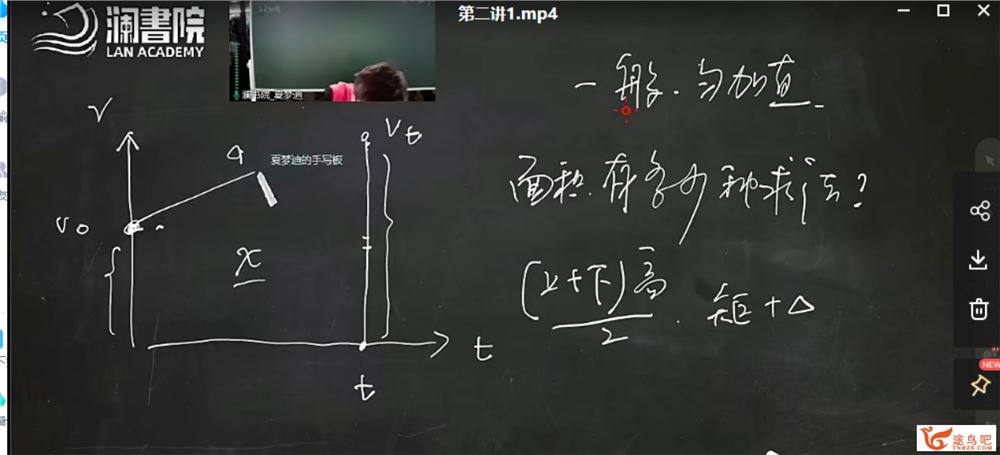 澜書院
LAN ACADEMY
第二讲1.mp4
澜书院_夏梦迪
一般.匀加直
V
a
夏梦迪的手写板
Vt
面积.有多少种求法?
V0
x
(上+下)高
2
.矩+△
t
t
NEW
途鸟吧
TNBZS.COM